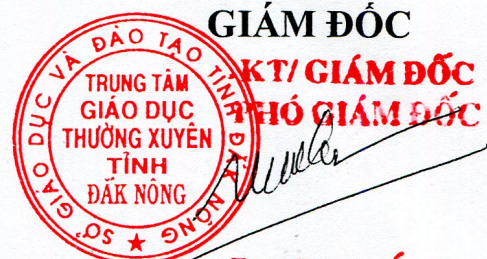 GIÁM ĐỐC
KT/ GIÁM ĐỐC
PHÓ GIÁM ĐỐC
SỞ GIÁO DỤC VÀ ĐÀO TẠO TỈNH ĐẮK NÔNG
TRUNG TÂM
GIÁO DỤC
THƯỜNG XUYÊN
TỈNH
ĐĂK NÔNG